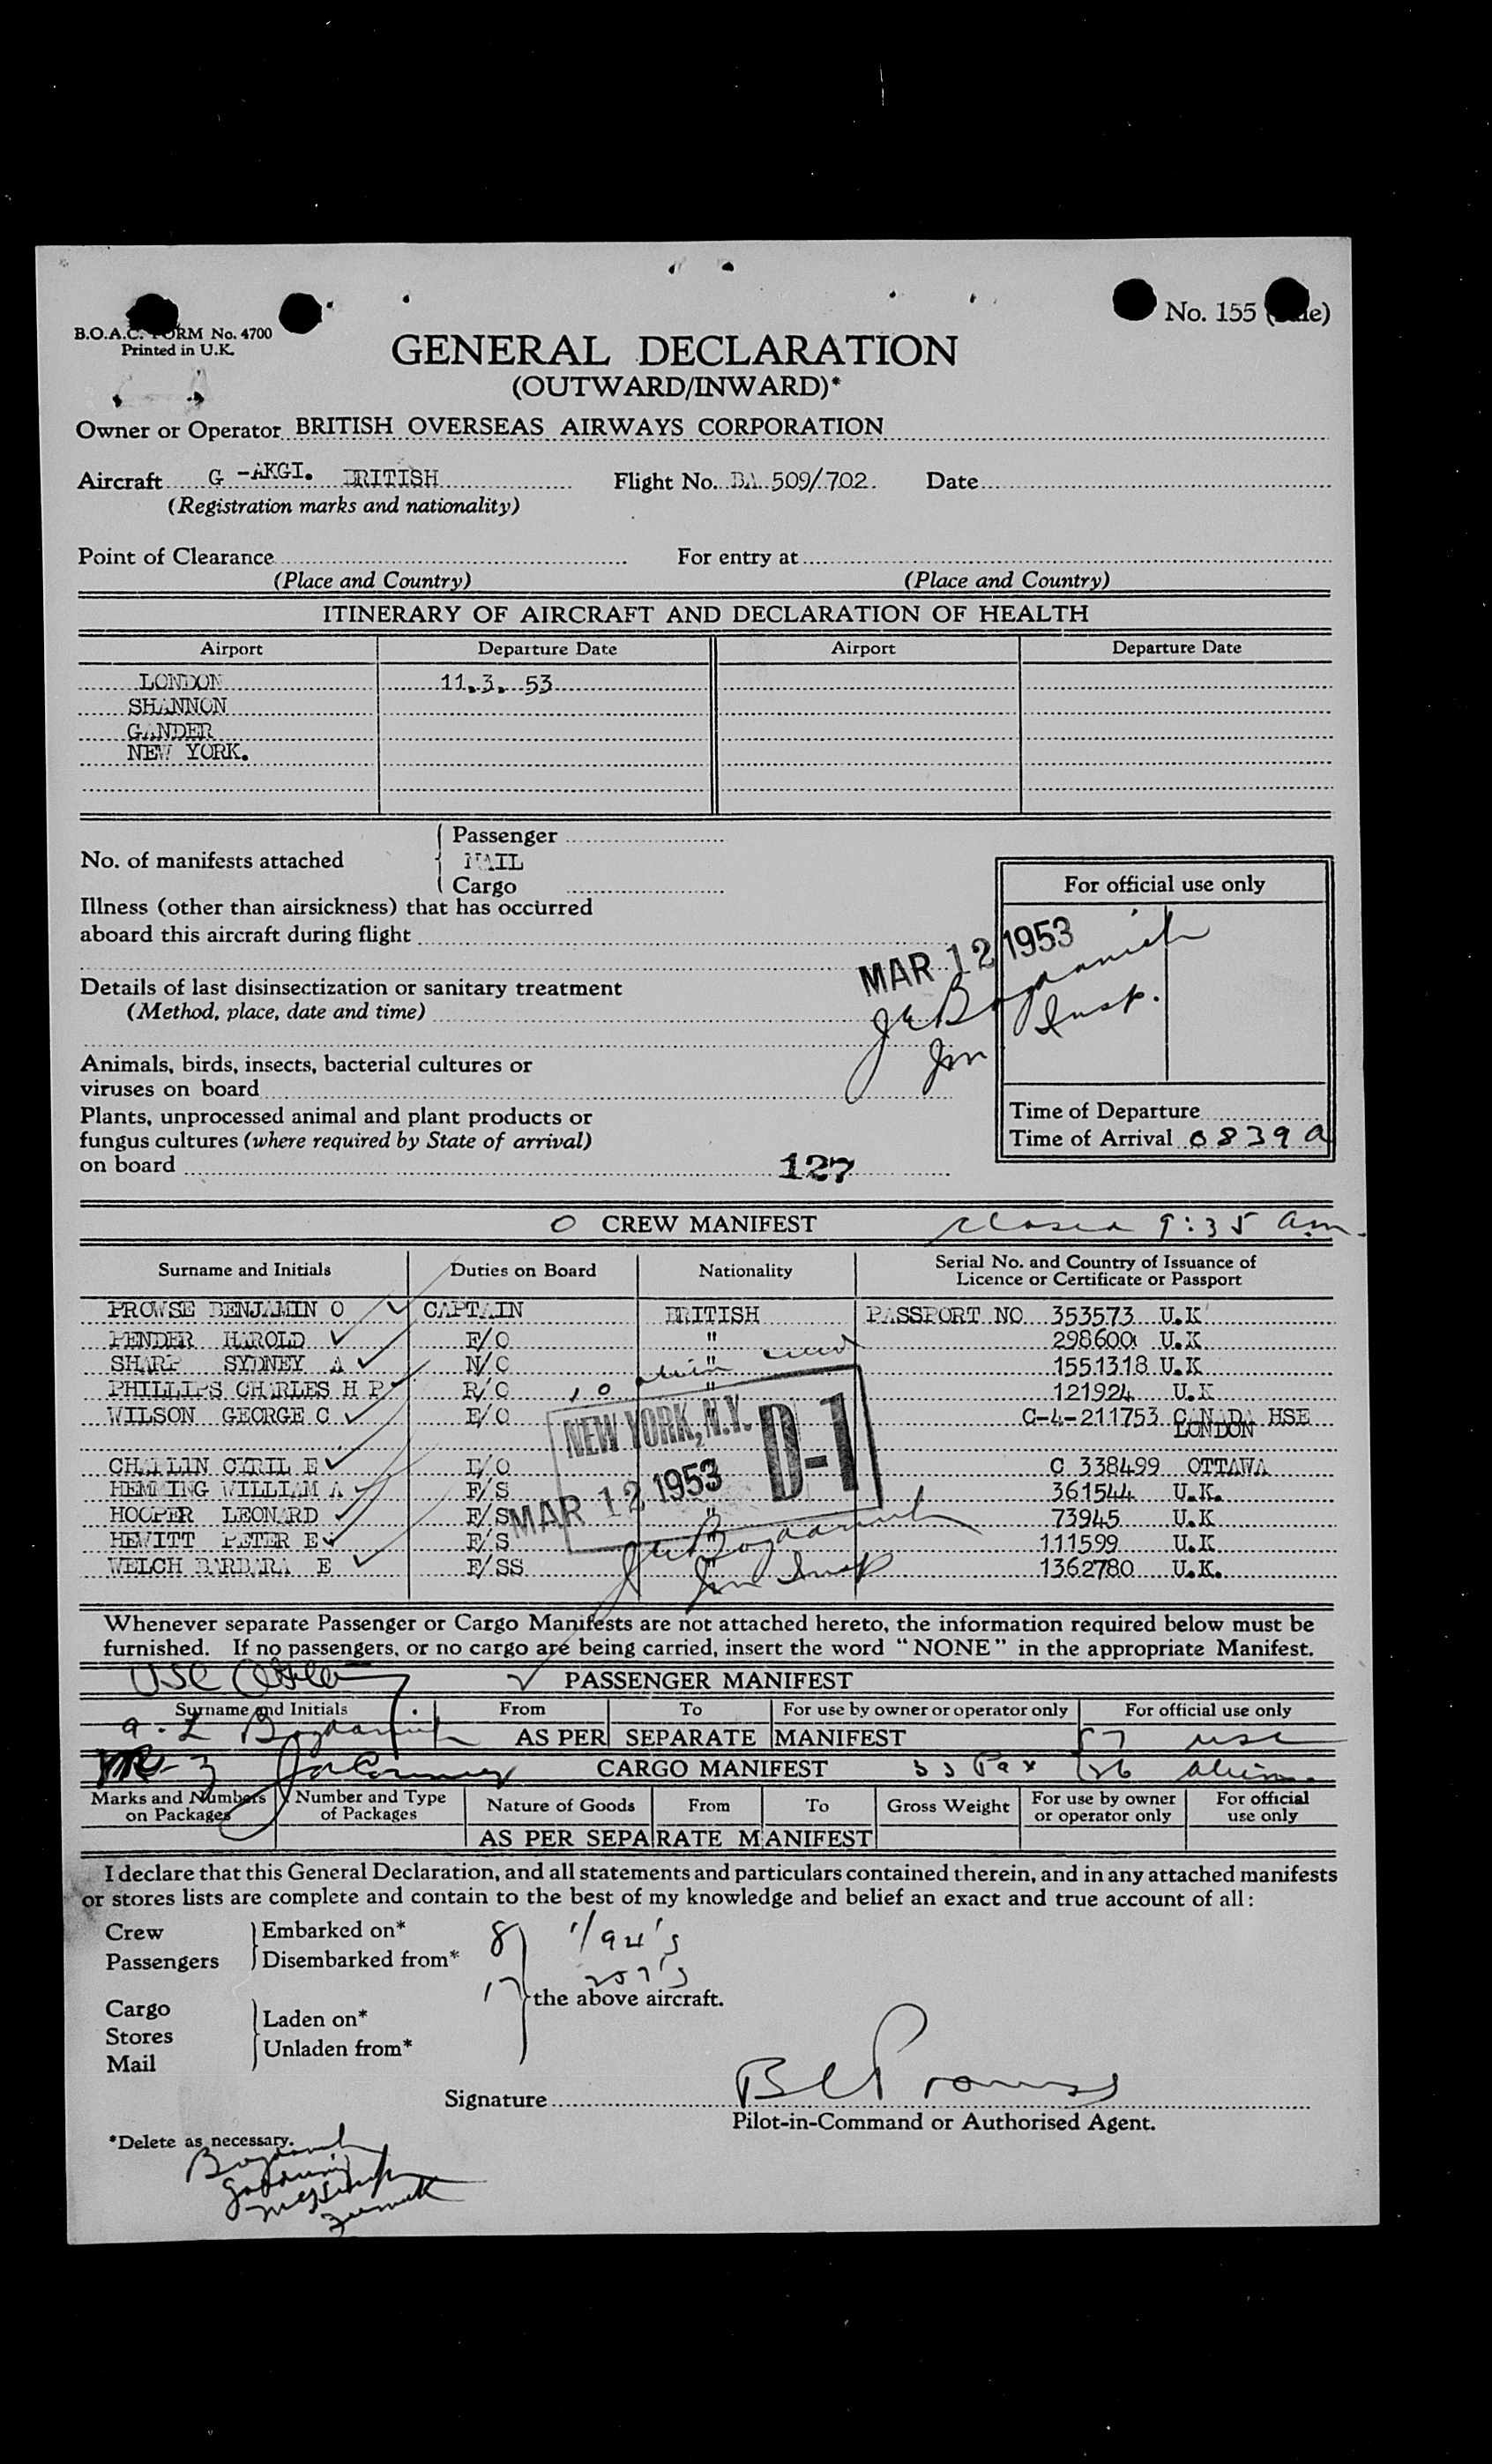 No. 155 (
B.O.A.C. FORM No. 4700
Printed in U.K.
GENERAL DECLARATION
(OUTWARD/INWARD)*
Owner or Operator BRITISH OVERSEAS AIRWAYS CORPORATION
Aircraft G -AKGI. BRITISH Flight No. BA 509/702. Date
(Registration marks and nationality)
Point of Clearance For entry at
(Place and Country) (Place and Country)
ITINERARY OF AIRCRAFT AND DECLARATION OF HEALTH
Airport Departure Date Airport Departure Date
LONDON 11.3. 53
SHANNON
GANDER
NEW YORK.
Passenger
No. of manifests attached MAIL
Cargo
For official use only
Illness (other than airsickness) that has occurred
aboard this aircraft during flight
MAR 12 1953
Details of last disinsectization or sanitary treatment
(Method, place, date and time)
Insp.
Imm
Animals, birds, insects, bacterial cultures or
viruses on board
Plants, unprocessed animal and plant products or
fungus cultures (where required by State of arrival)
on board 127
Time of Departure
Time of Arrival 0839 a
O CREW MANIFEST closed 9:35 am.
Surname and Initials Duties on Board Nationality Serial No. and Country of Issuance of
Licence or Certificate or Passport
PROWSE BENJAMIN O CAPTAIN BRITISH PASSPORT NO 353573 U.K
PENDER HAROLD F/O " 298600 U.K
SHARP SYDNEY A N/O " 1551318 U.K
PHILLIPS CHARLES H P R/O " 121924 U.K
WILSON GEORGE C E/O " C-4-211753 CANADA HSE
LONDON
CYRIL E E/O C 338499 OTTAWA
HEMMING WILLIAM A F/S 361544 U.K.
HOOPER LEONARD F/S " 73945 U.K
HEWITT PETER E F/S " 111599 U.K
WELCH BARBARA E F/SS " 1362780 U.K.
NEW YORK, N.Y. D-1
MAR 12 1953
Imm Insp
Whenever separate Passenger or Cargo Manifests are not attached hereto, the information required below must be
furnished. If no passengers, or no cargo are being carried, insert the word "NONE" in the appropriate Manifest.
PASSENGER MANIFEST
Surname and Initials From To For use by owner or operator only For official use only
AS PER SEPARATE MANIFEST
CARGO MANIFEST 33 Pax
Marks and Numbers on Packages Number and Type of Packages Nature of Goods From To Gross Weight For use by owner or operator only For official use only
AS PER SEPARATE MANIFEST
I declare that this General Declaration, and all statements and particulars contained therein, and in any attached manifests
or stores lists are complete and contain to the best of my knowledge and belief an exact and true account of all:
Crew Embarked on* 8
Passengers Disembarked from*
17
the above aircraft.
Cargo Laden on*
Stores
Unladen from*
Mail
Signature
Pilot-in-Command or Authorised Agent.
*Delete as necessary.